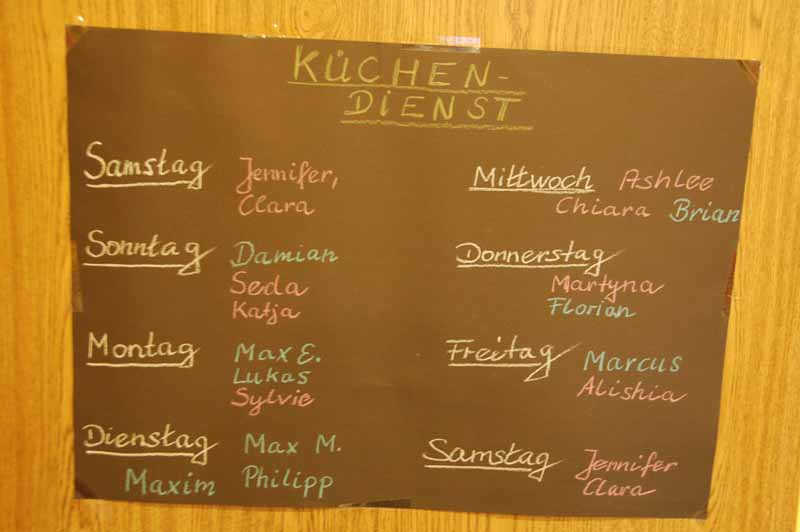 KÜCHEN-
DIENST
Samstag Jennifer,
Clara
Sonntag Damian
Seda
Katja
Montag Max E.
Lukas
Sylvie
Dienstag Max M.
Maxim Philipp
Mittwoch Ashlee
Chiara Brian
Donnerstag
Martyna
Florian
Freitag Marcus
Alishia
Samstag Jennifer
Clara